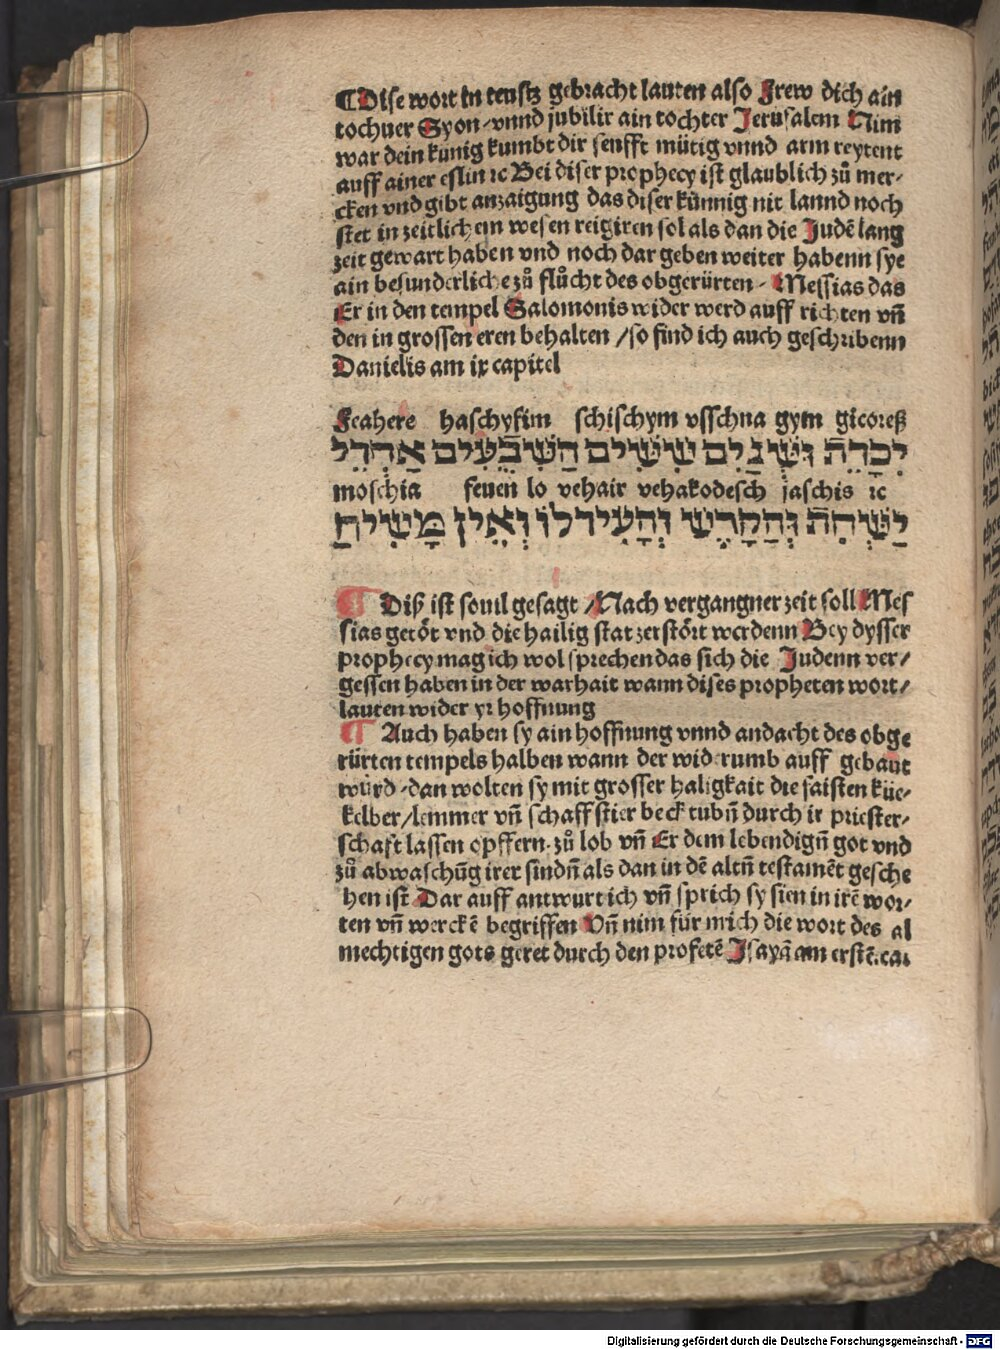 ¶Dise wort in teustz gebracht lauten also Frew dich ain
tochuer Syon ·vnnd jubilir ain tochter Jerusalem Nim
war dein künig kumbt dir senfft mütig vnnd arm reytent
auff ainer eslin ꝛc Bei diser prophecy ist glaublich zů mer-
cken vnd gibt anzaigung das diser künnig nit lannd noch
stet in zeitlichem wesen reigiren sol als dan die Judē lang
zeit gewart haben vnd noch dar geben weiter habenn sye
ain besunderliche zů flůcht des obgerürten · Messias das
Er in den tempel Salomonis wider werd auff richten vñ
den in grossen eren behalten /so find ich auch geschribenn
Danielis am ix capitel
Feahere haschyfim schischym vsschna gym gicoreß
moschia feuen lo vehair vehakodesch jaschis ꝛc
¶ Diß ist souil gesagt /Nach vergangner zeit soll Mes
sias getöt vnd die hailig stat zerstört werdenn Bey dysser
prophecy mag ich wol sprechen das sich die Judenn ver/
gessen haben in der warhait wann dises propheten wort/
lauten wider yr hoffnung
¶ Auch haben sy ain hoffnung vnnd andacht des obge
rürten tempels halben wann der wid rumb auff gebaut
würd ·dan wolten sy mit grosser haligkait die faisten küe-
kelber/lemmer vñ schaff stier beck tubñ durch ir priester-
schaft lassen opffern· zů lob vñ Er dem lebendigñ got vnd
zů abwaschūg irer sindñ als dan in dē altñ testamēt gesche
hen ist Dar auff antwurt ich vñ sprich sy sien in irē wor-
ten vñ werckē begriffen Vñ nim für mich die wort des al
mechtigen gots geret durch den profetē Jsayā am erstē.ca